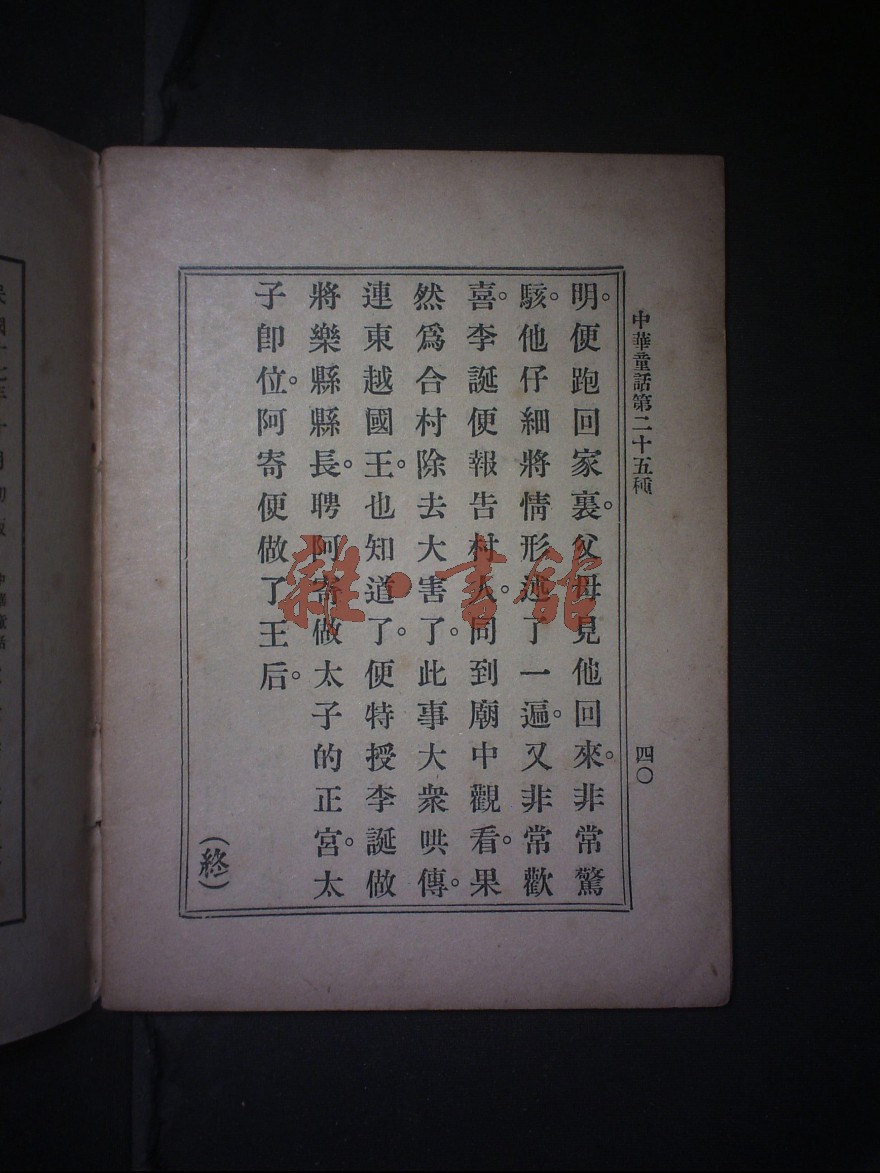 中華童話第二十五種
四〇
明。便跑回家裏。父母見他回來。非常驚
駭。他仔細將情形述了一遍。又非常歡
喜。李誕便報告村人。同到廟中觀看。果
然爲合村除去大害了。此事大衆哄傳。
連東越國王。也知道了。便特授李誕做
將樂縣縣長。聘阿寄做太子的正宮。太
子卽位。阿寄便做了王后。
(終)
雜·書館